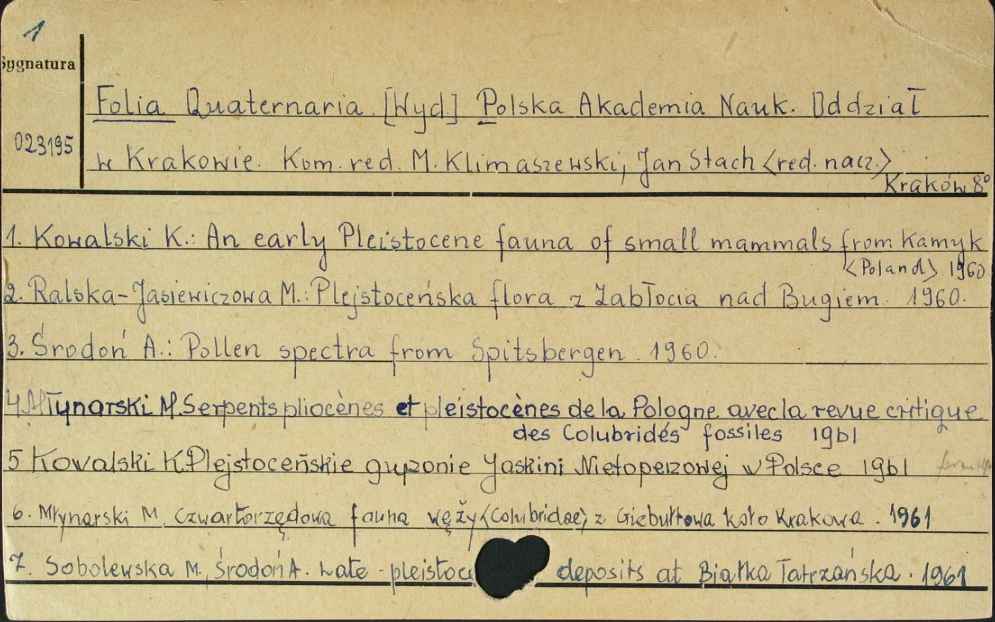 1
Sygnatura
Folia Quaternaria. [Wyd] Polska Akademia Nauk. Oddział
023195
w Krakowie. Kom. red. M. Klimaszewski, Jan Stach <red. nacz.>
Kraków 8°
1. Kowalski K.: An early Pleistocene fauna of small mammals from Kamyk
<Poland> 1960
2. Ralska-Jasiewiczowa M.: Plejstoceńska flora z Zabłocia nad Bugiem. 1960.
3. Środoń A.: Pollen spectra from Spitsbergen. 1960.
4. Młynarski M. Serpents pliocènes et pleistocènes de la Pologne avec la revue critique
des Colubridés fossiles 1961
5 Kowalski K. Plejstoceńskie gryzonie Jaskini Nietoperzowej w Polsce 1961
6. Młynarski M. Czwartorzędowa fauna węży <Colubridae> z Giebułtowa koło Krakowa. 1961
7. Sobolewska M. Środoń A. Late-pleistoc deposits at Białka Tatrzańska. 1961